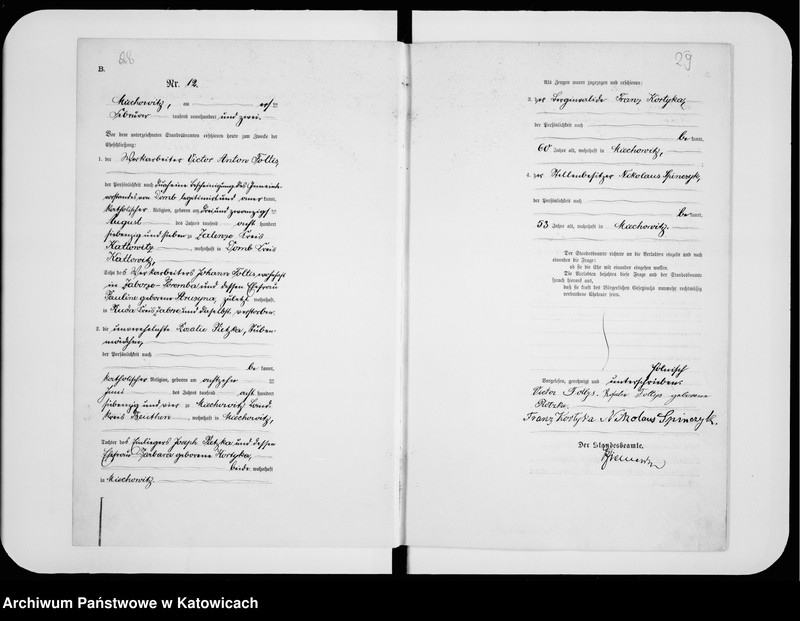 28
B.
Nr. 12.
Miechowitz, am erſten
Februar tauſend neunhundert und zwei.
Vor dem unterzeichneten Standesbeamten erſchienen heute zum Zwecke der
Eheſchließung:
1. der Werkarbeiter Victor Anton
der Perſönlichkeit nach durch eine Beſcheinigung des Gemeinde-
vorſtandes von Domb legitimirt und anerkannt,
katholiſcher Religion, geboren am drei und zwanzigſten
Auguſt des Jahres tauſend acht hundert
ſiebenzig und ſieben zu Zalenze Kreis
Kattowitz, wohnhaft in Domb Kreis
Kattowitz,
Sohn des Werkarbeiters Johann
in Zaborze-Poremba und deſſen Ehefrau
Pauline geborene zuletzt wohnhaft
in Ruda Kreis Zabrze und daſelbſt verſtorben.
2. die unverehelichte Roſalie Retzka, Gruben-
mädchen,
der Perſönlichkeit nach
be kannt,
katholiſcher Religion, geboren am achtzehnten
Juni des Jahres tauſend acht hundert
ſiebenzig und vier zu Miechowitz Land-
kreis Beuthen, wohnhaft in Miechowitz,
Tochter des Einliegers Joſeph Retzka und deſſen
Ehefrau Barbara geborene Kortyka,
beide wohnhaft
in Miechowitz.
29
Als Zeugen waren zugezogen und erſchienen:
3. der Berginvalide Franz Kortyka,
der Perſönlichkeit nach
be kannt,
60 Jahre alt, wohnhaft in Miechowitz,
4. der Stellenbeſitzer Nikolaus Spinczyk,
der Perſönlichkeit nach
be kannt,
53 Jahre alt, wohnhaft in Miechowitz.
Der Standesbeamte richtete an die Verlobten einzeln und nach
einander die Frage:
ob ſie die Ehe mit einander eingehen wollen.
Die Verlobten bejahten dieſe Frage und der Standesbeamte
ſprach hierauf aus,
daß ſie kraft des Bürgerlichen Geſetzbuchs nunmehr rechtmäßig
verbundene Eheleute ſeien.
Vorgeleſen, genehmigt und unterſchrieben
Victor Foltys. Foltys geborene
Franz Kortyka Nikolaus Spinczyk.
Der Standesbeamte.
Archiwum Państwowe w Katowicach